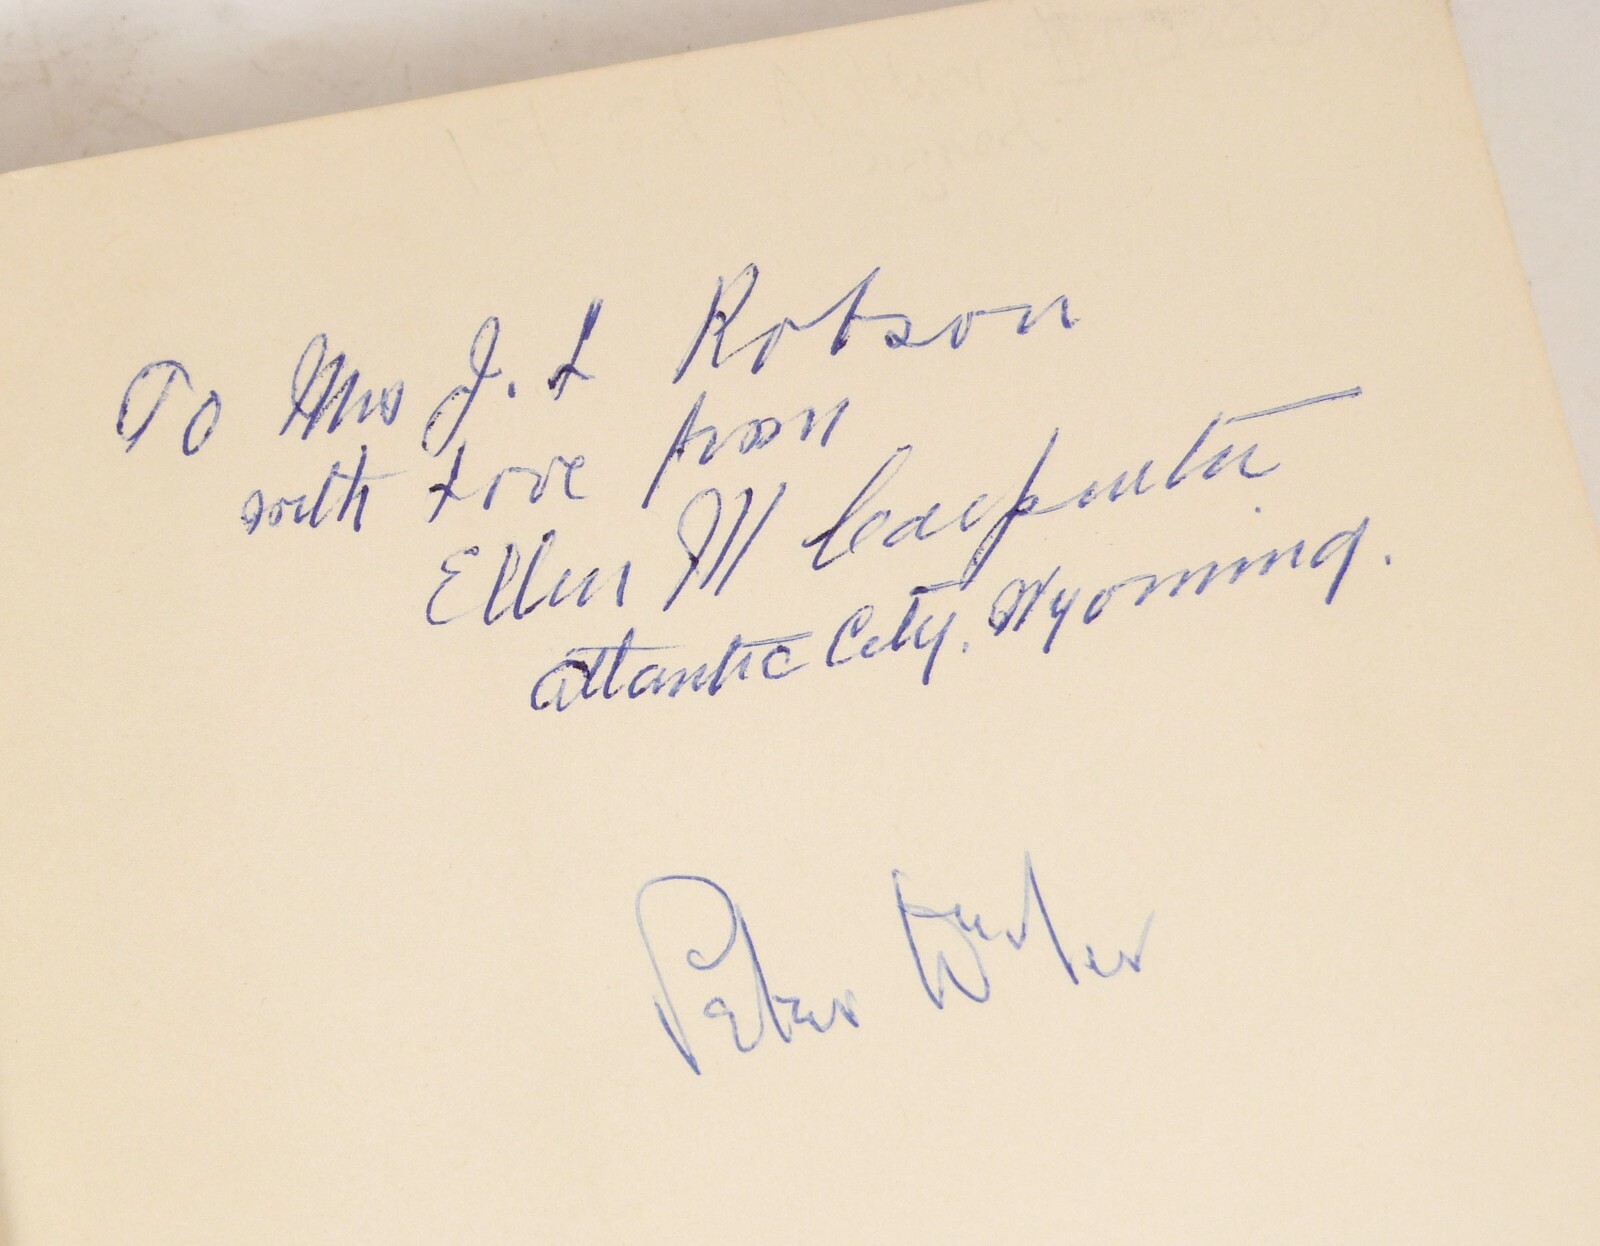 To Mrs J. L Robson
with Love from
Ellen M Carpenter
Atlantic City, Wyoming.
Peter